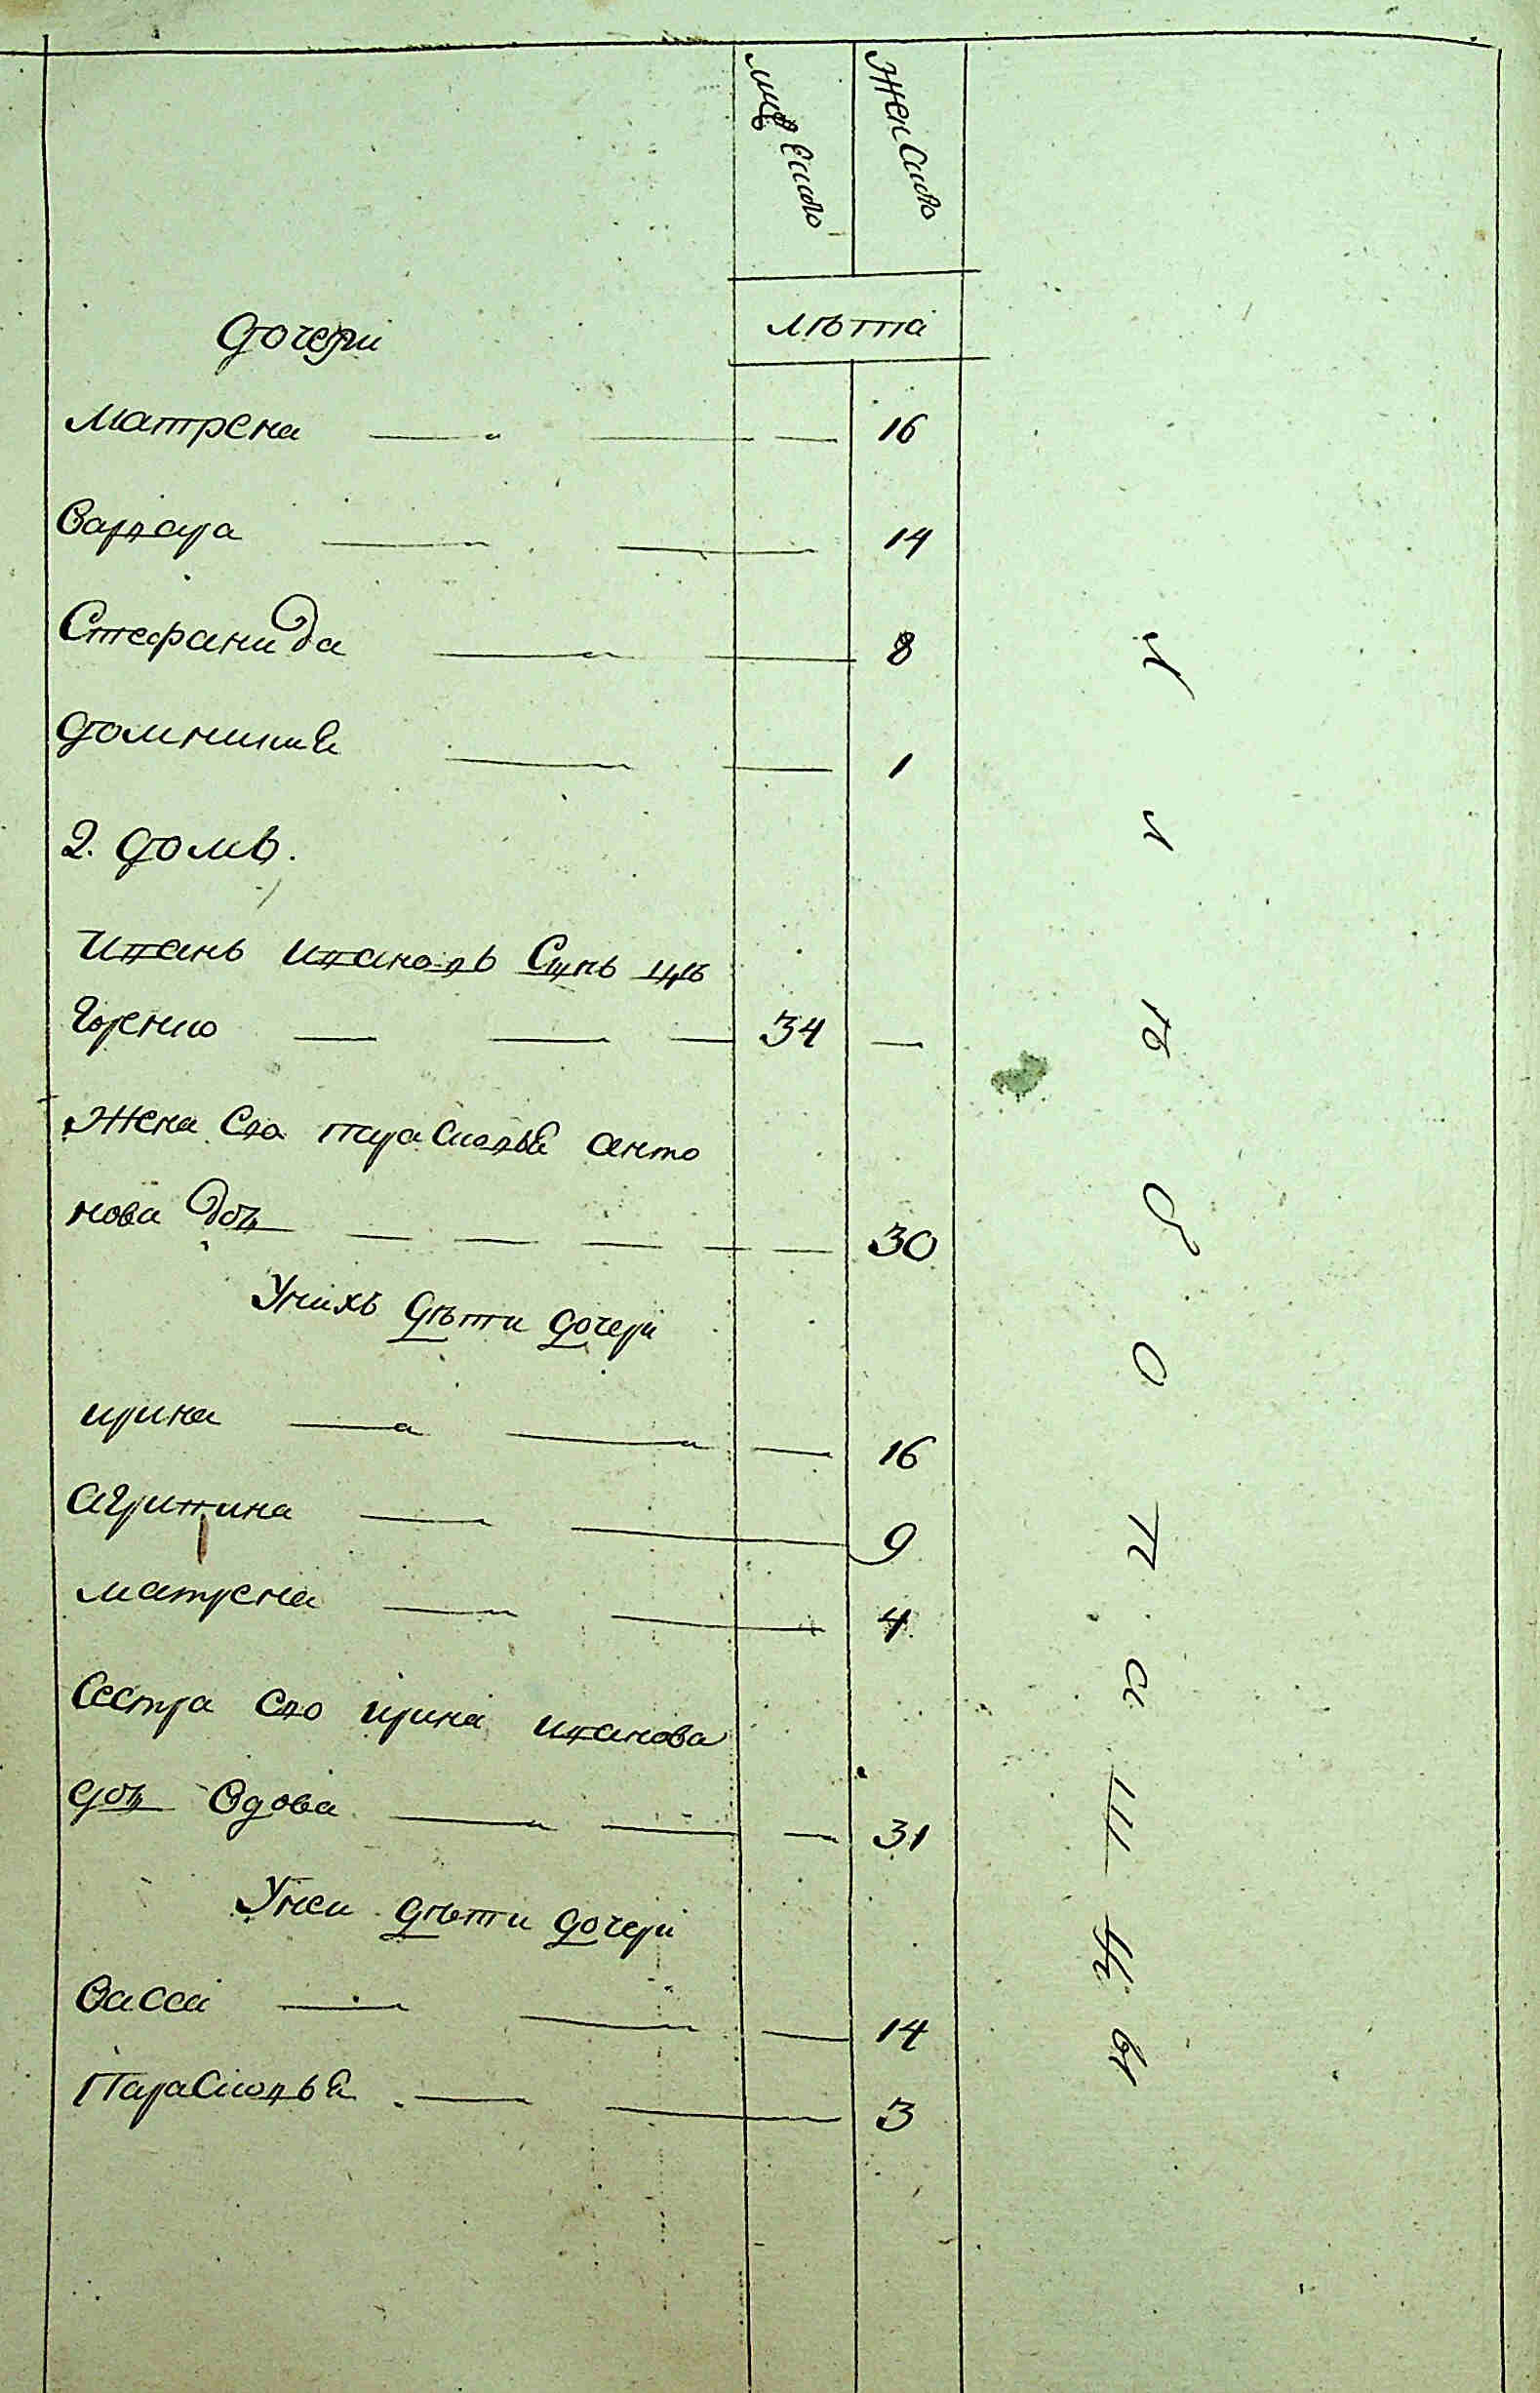 мужеско
женско
лѣта
дочери
матрена 16
варвара 14
Стефанида 8
домникиа 1
2. домъ.
иванъ ивановъ Сынъ
34
жена его парасковьа анто
нова дочь 30
Унихъ дѣти дочери
ирина 16
агрипина 9
матрена 4
Сестра его ирина иванова
дочь вдова 31
Унеи дѣти дочери
васса 14
Парасковьа 3